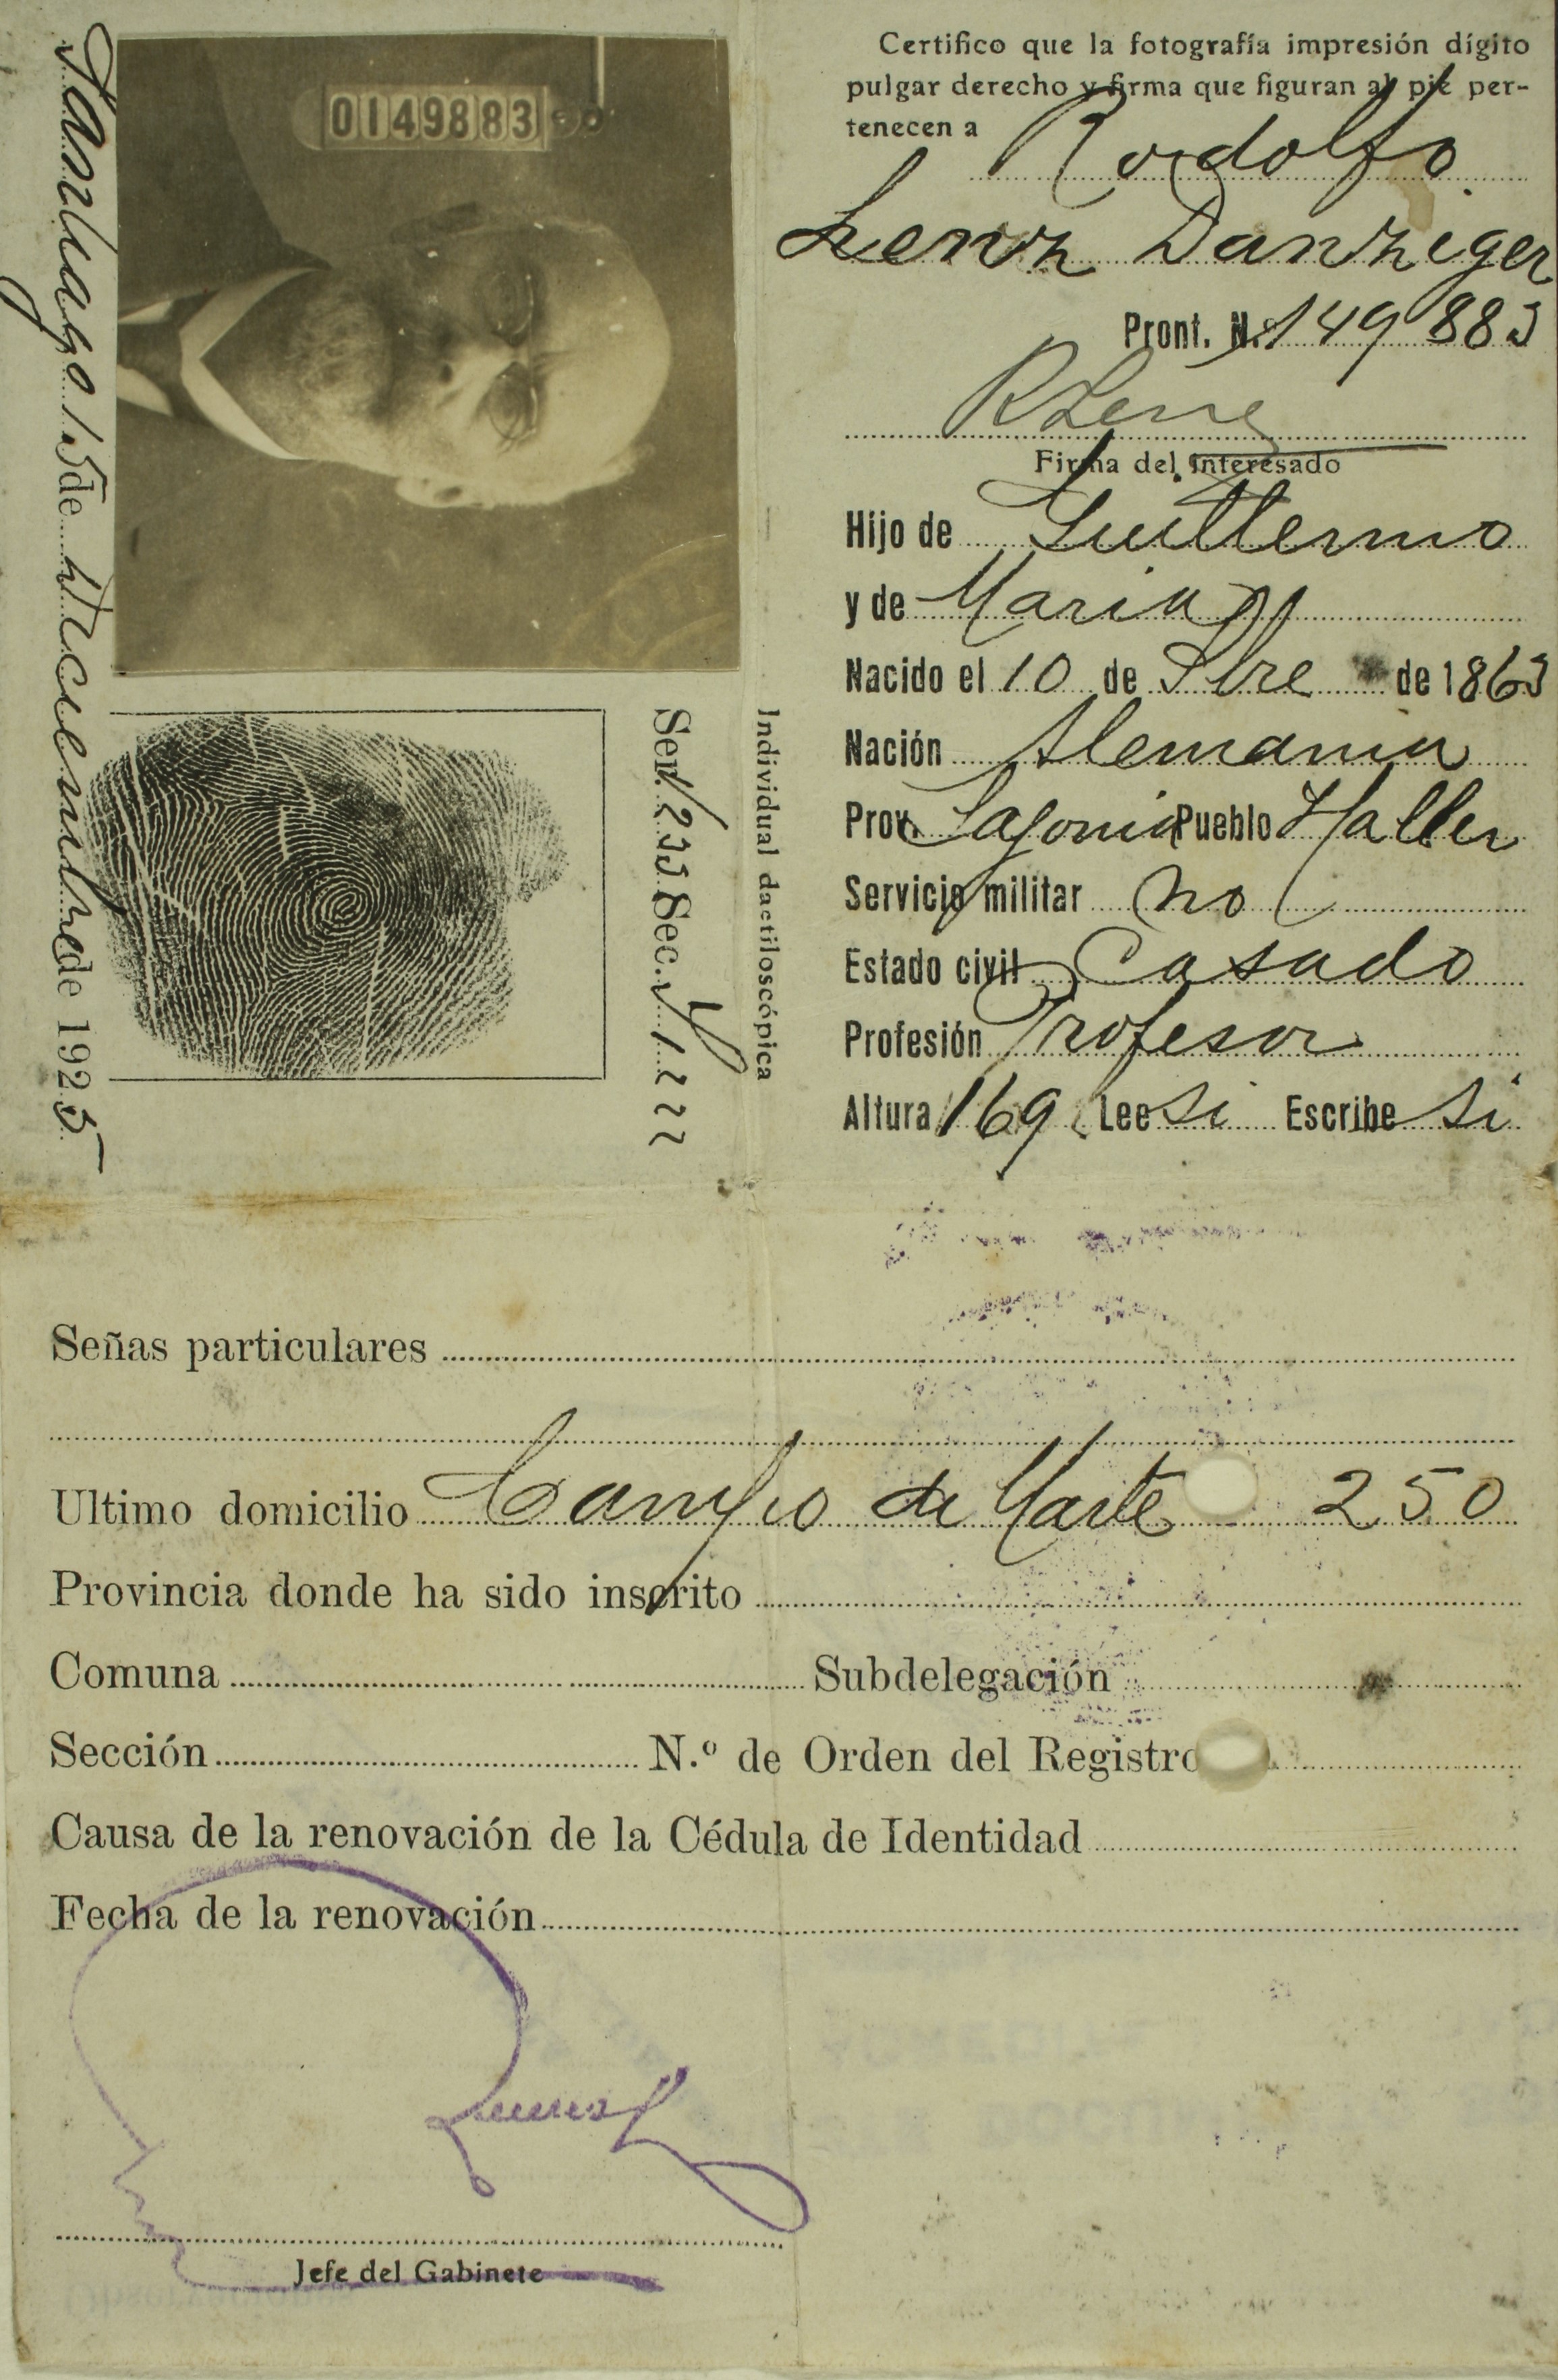 Santiago 15 de Diciembre de 1925
0149883
Ser. 1233 Sec. 1222
Individual dactiloscópica
Certifico que la fotografía impresión dígito
pulgar derecho y firma que figuran al pie per-
tenecen a Rodolfo
Lenz Danziger
Pront. N.º 149883
RLenz
Firma del interesado
Hijo de Guillermo
y de Maria
Nacido el 10 de 9bre de 1863
Nación Alemania
Prov. Sajonia Pueblo Halle
Servicio militar no
Estado civil Casado
Profesión Profesor
Altura 169 Lee si Escribe si
Señas particulares
Ultimo domicilio Campo de Marte 250
Provincia donde ha sido inscrito
Comuna Subdelegación
Sección N.º de Orden del Registro
Causa de la renovación de la Cédula de Identidad
Fecha de la renovación
Jefe del Gabinete